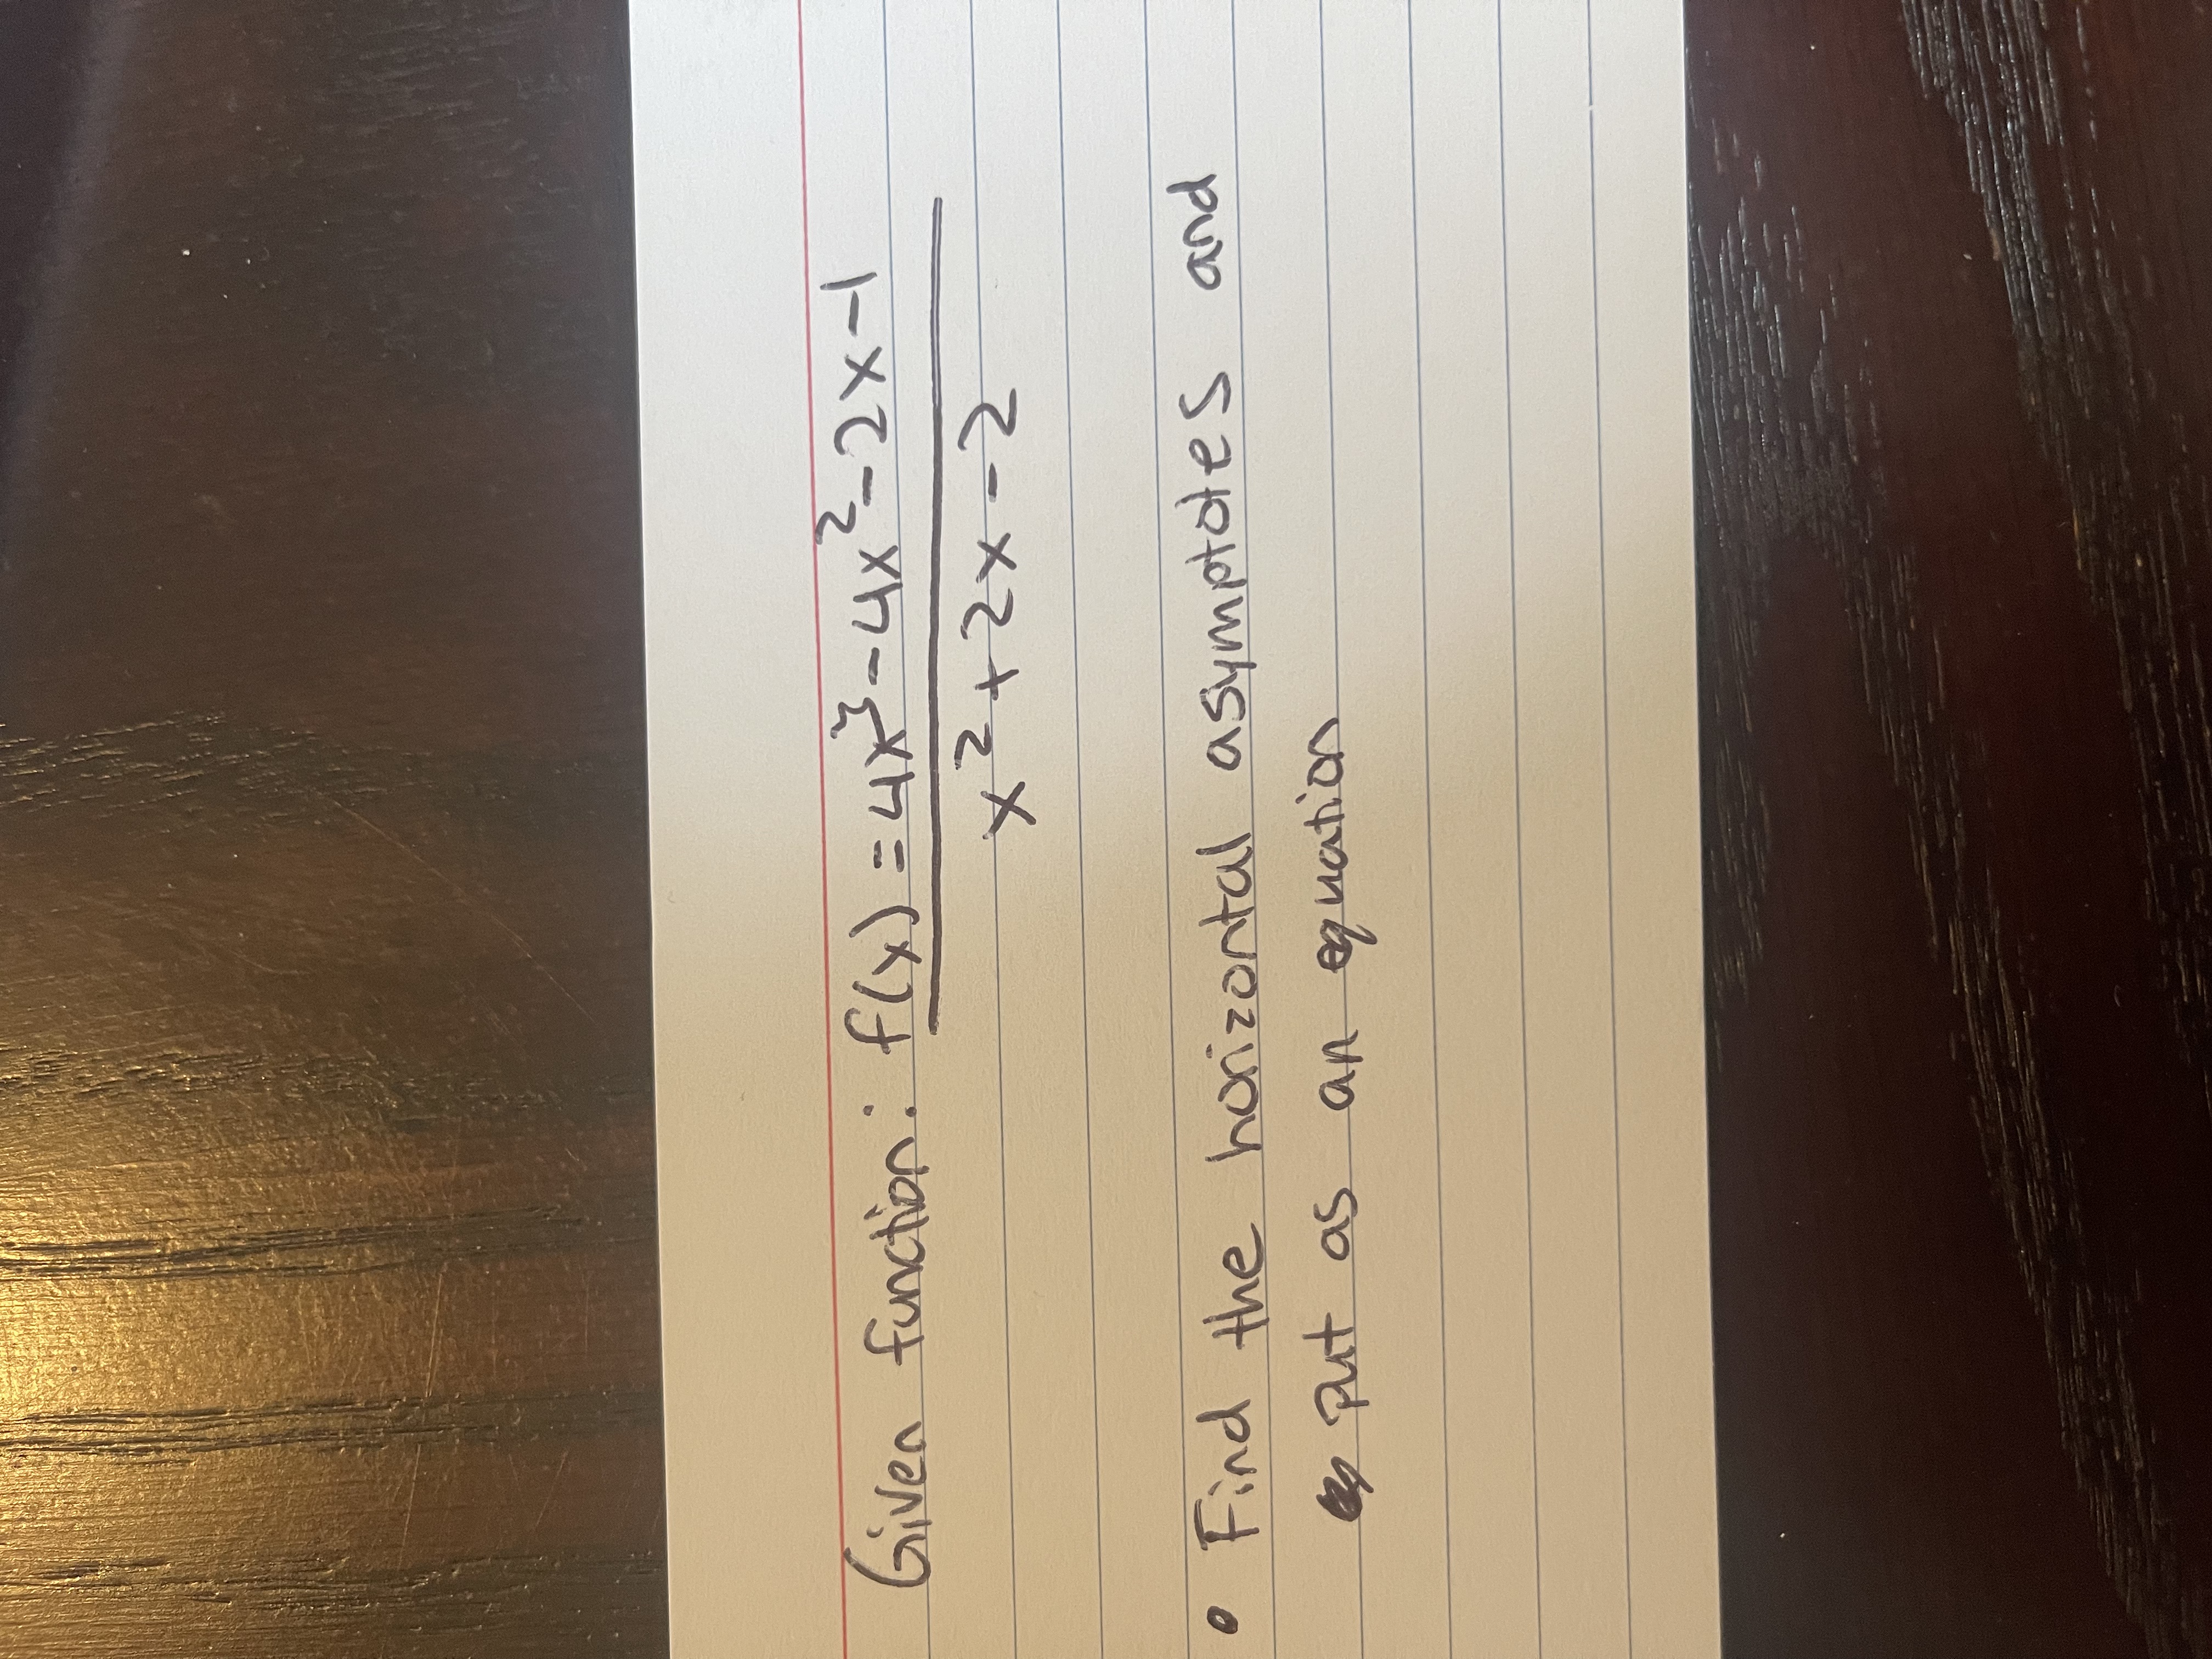 Given function: f(x) = 4x³ - 4x² - 2x - 1
x² + 2x - 2
• Find the horizontal asymptotes and
put as an equation